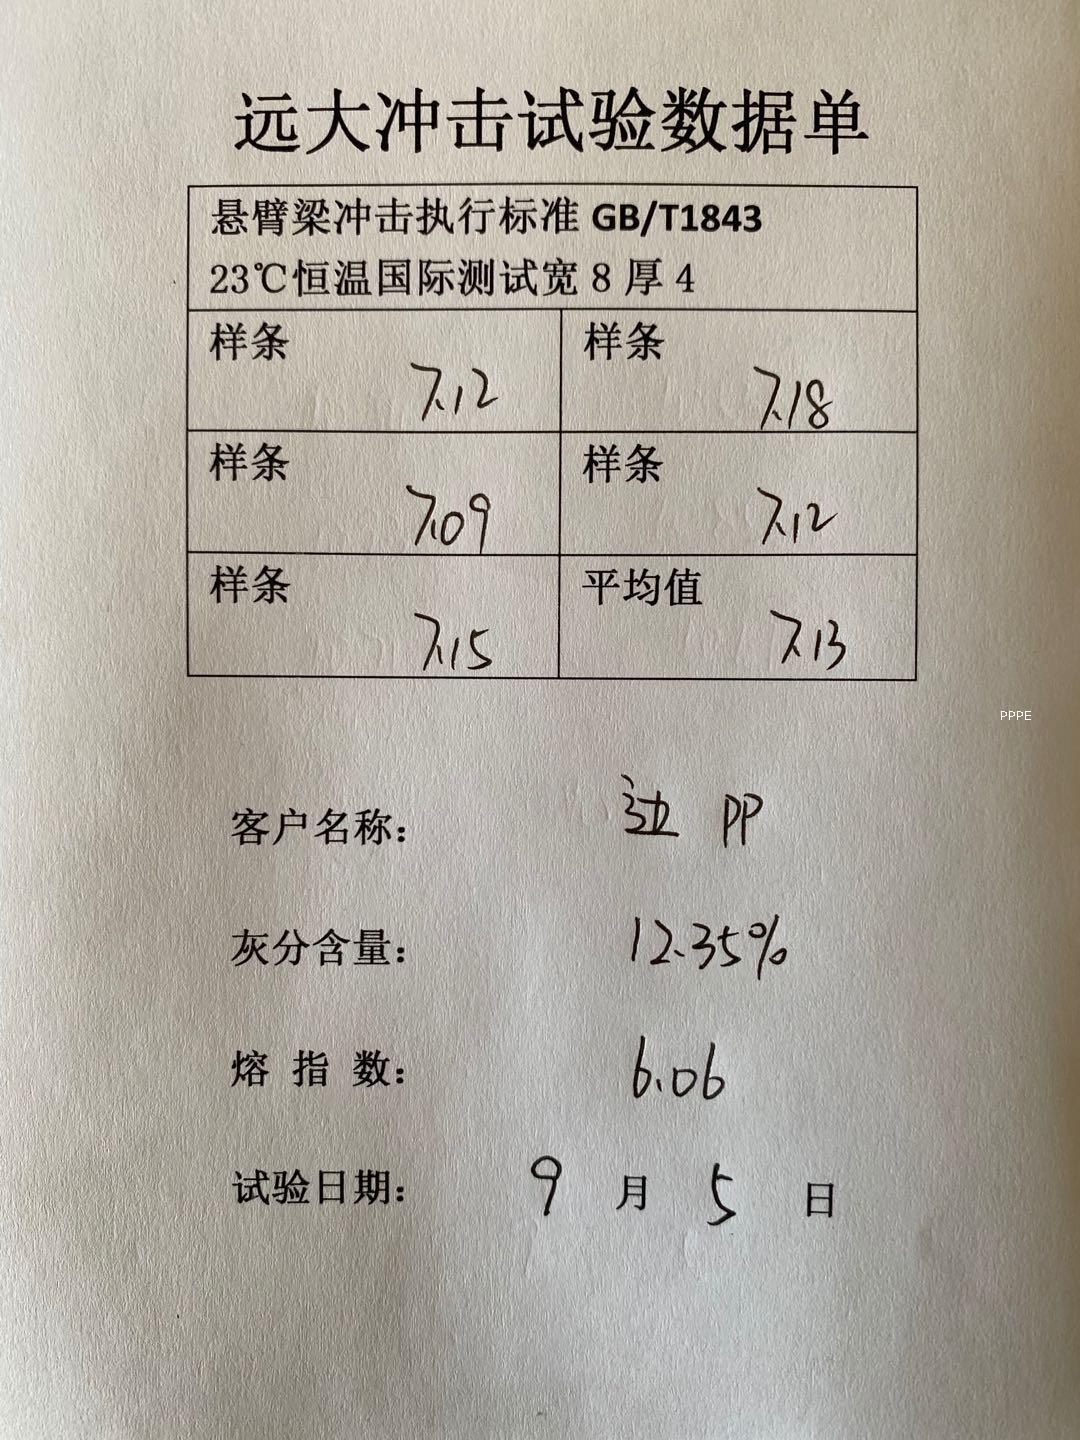 远大冲击试验数据单
悬臂梁冲击执行标准 GB/T1843
23℃恒温国际测试宽 8 厚 4
样条 7.12 样条 7.18
样条 7.09 样条 7.12
样条 7.15 平均值 7.13
PPPE
客户名称： 边 PP
灰分含量： 12.35%
熔 指 数： 6.06
试验日期： 9 月 5 日